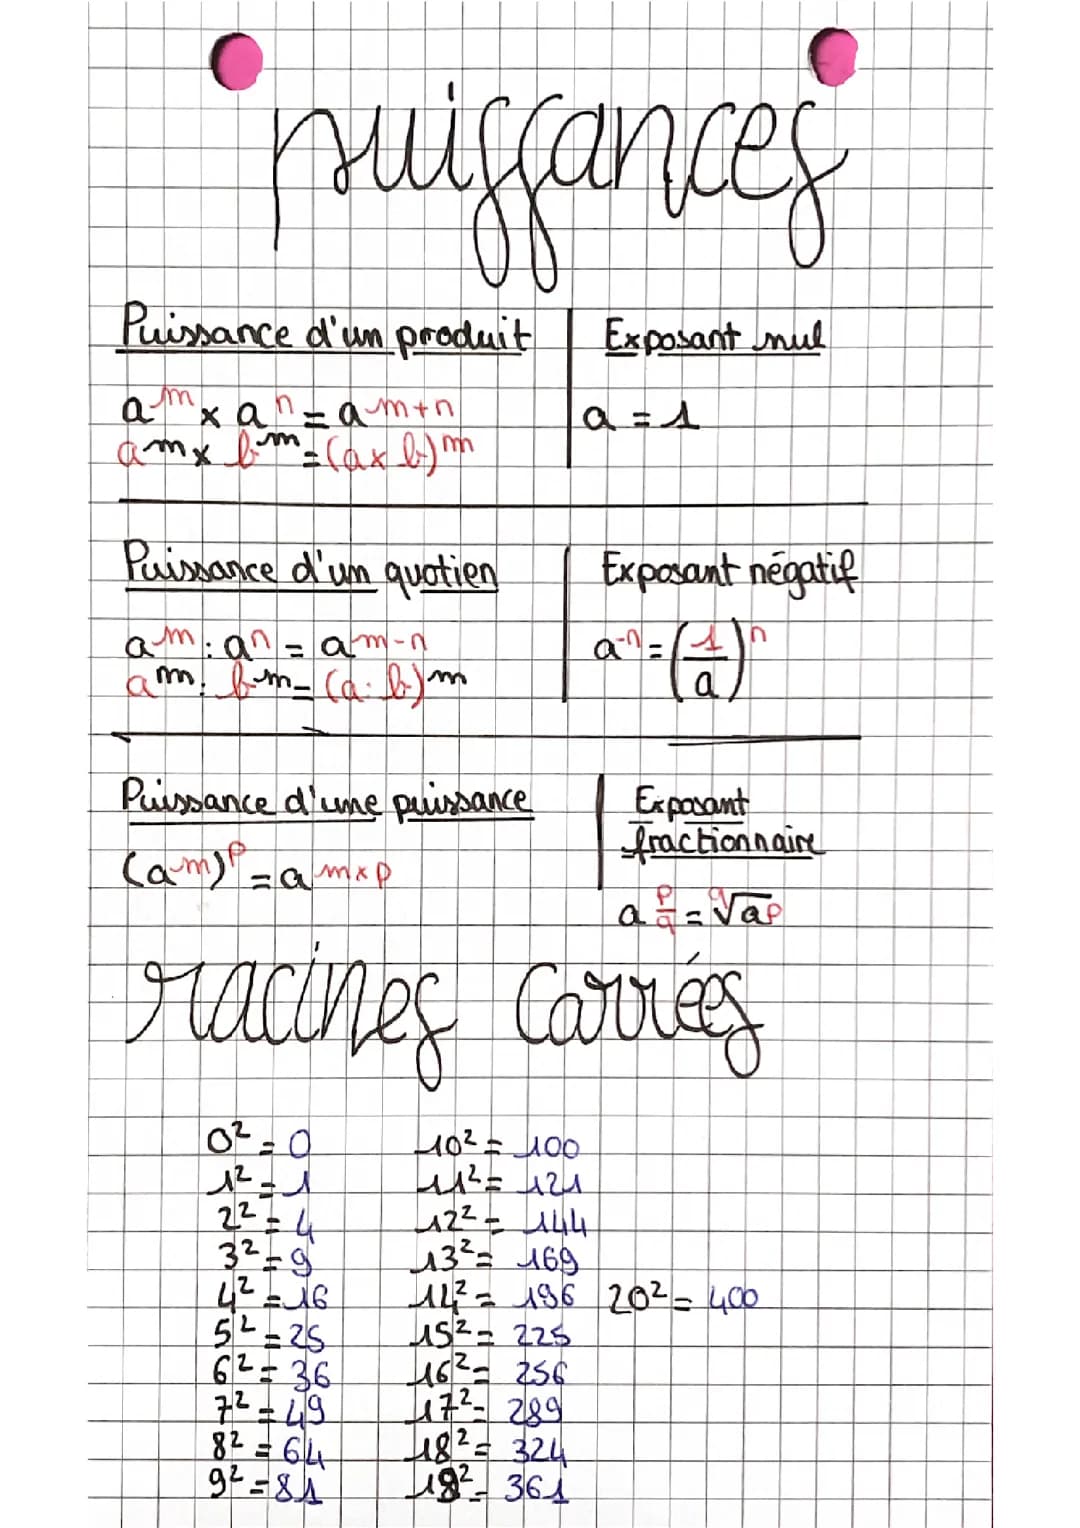 puissances
Puissance d'un produit
a^m x a^n = a^m+n
a^m x b^m = (a x b)^m
Exposant nul
a = 1
Puissance d'un quotien
a^m : a^n = a^m-n
a^m : b^m = (a : b)^m
Exposant négatif
a^-n = (1/a)^n
Puissance d'une puissance
(a^m)^p = a^m x p
Exposant
fractionnaire
a^p/q = ^q√a^p
racines carrées
0² = 0
1² = 1
2² = 4
3² = 9
4² = 16
5² = 25
6² = 36
7² = 49
8² = 64
9² = 81
10² = 100
11² = 121
12² = 144
13² = 169
14² = 196
15² = 225
16² = 256
17² = 289
18² = 324
19² = 361
20² = 400